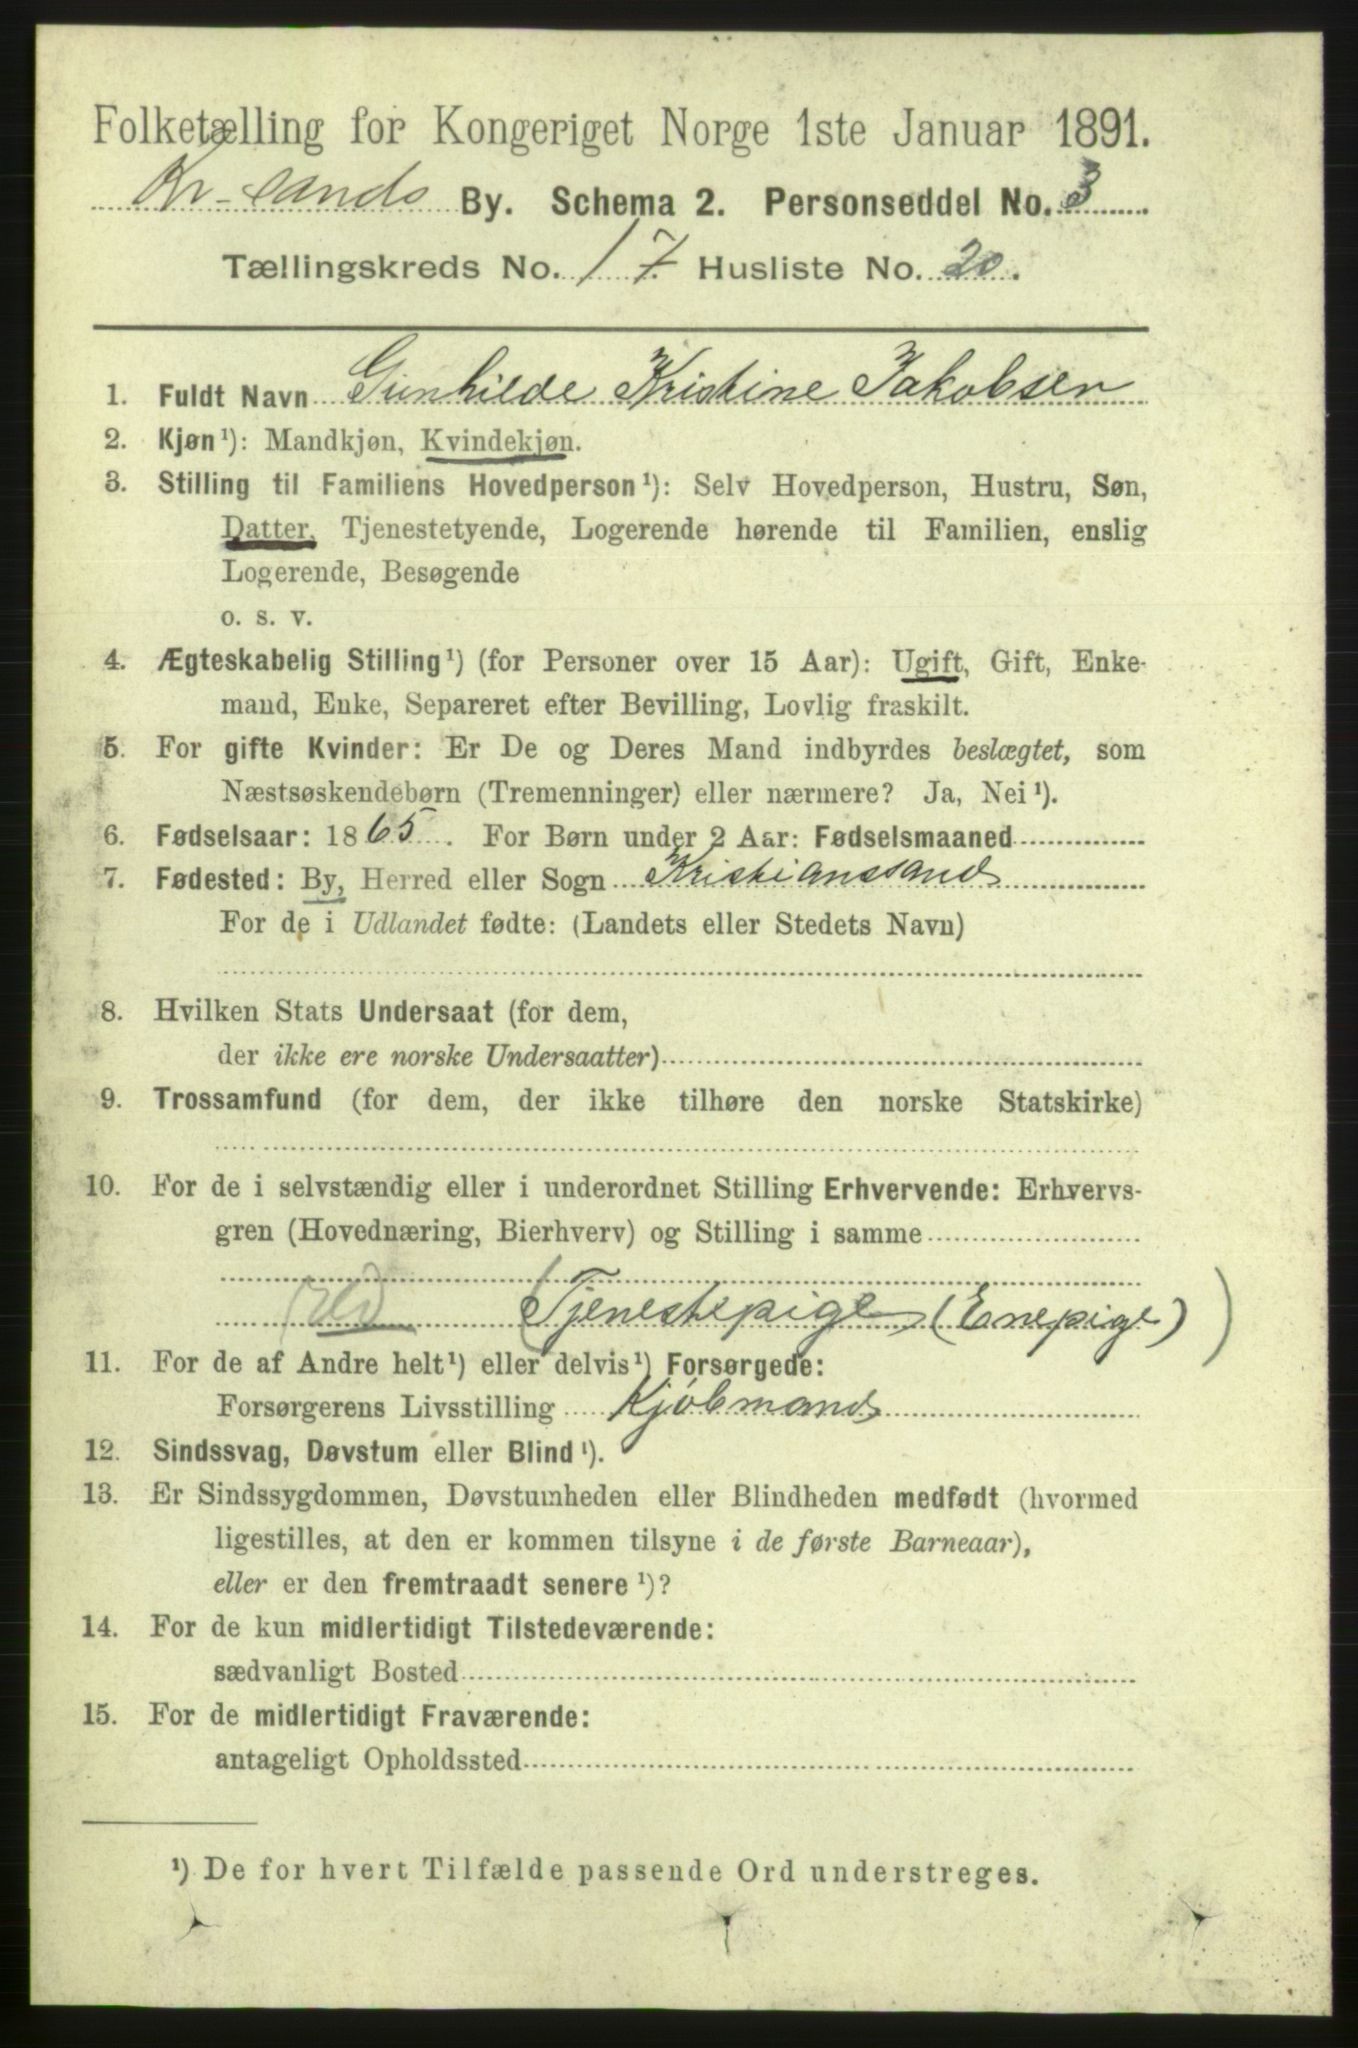 Folketælling for Kongeriget Norge 1ste Januar 1891.
Kr-sands By. Schema 2. Personseddel No. 3
Tællingskreds No. 17. Husliste No. 20.
1. Fuldt Navn Gunhilde Kristine Jakobsen
2. Kjøn¹): Mandkjøn, Kvindekjøn.
3. Stilling til Familiens Hovedperson¹): Selv Hovedperson, Hustru, Søn,
Datter, Tjenestetyende, Logerende hørende til Familien, enslig
Logerende, Besøgende
o. s. v.
4. Ægteskabelig Stilling¹) (for Personer over 15 Aar): Ugift, Gift, Enke-
mand, Enke, Separeret efter Bevilling, Lovlig fraskilt.
5. For gifte Kvinder: Er De og Deres Mand indbyrdes beslægtet, som
Næstsøskendebørn (Tremenninger) eller nærmere? Ja, Nei¹).
6. Fødselsaar: 1865. For Børn under 2 Aar: Fødselsmaaned
7. Fødested: By, Herred eller Sogn Kristianssand
For de i Udlandet fødte: (Landets eller Stedets Navn)
8. Hvilken Stats Undersaat (for dem,
der ikke ere norske Undersaatter)
9. Trossamfund (for dem, der ikke tilhøre den norske Statskirke)
10. For de i selvstændig eller i underordnet Stilling Erhvervende: Erhvervs-
gren (Hovednæring, Bierhverv) og Stilling i samme
(Tjenestepige (Enepige))
11. For de af Andre helt¹) eller delvis¹) Forsørgede:
Forsørgerens Livsstilling Kjöbmand
12. Sindssvag, Døvstum eller Blind¹).
13. Er Sindssygdommen, Døvstumheden eller Blindheden medfødt (hvormed
ligestilles, at den er kommen tilsyne i de første Barneaar),
eller er den fremtraadt senere¹)?
14. For de kun midlertidigt Tilstedeværende:
sædvanligt Bosted
15. For de midlertidigt Fraværende:
antageligt Opholdssted
¹) De for hvert Tilfælde passende Ord understreges.